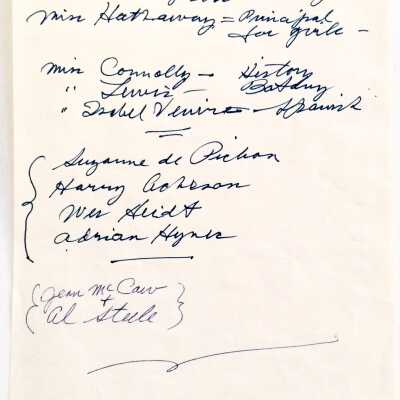 Miss Hathaway = Principal
for girls -
Miss Connolly - History
" Lewis - Botany
" Isobel Venire - Spanish
Suzanne de Pichon
Harry Acheson
Wes Heidt
Adrian Hynes
Jean McCaw
+
Al Steele